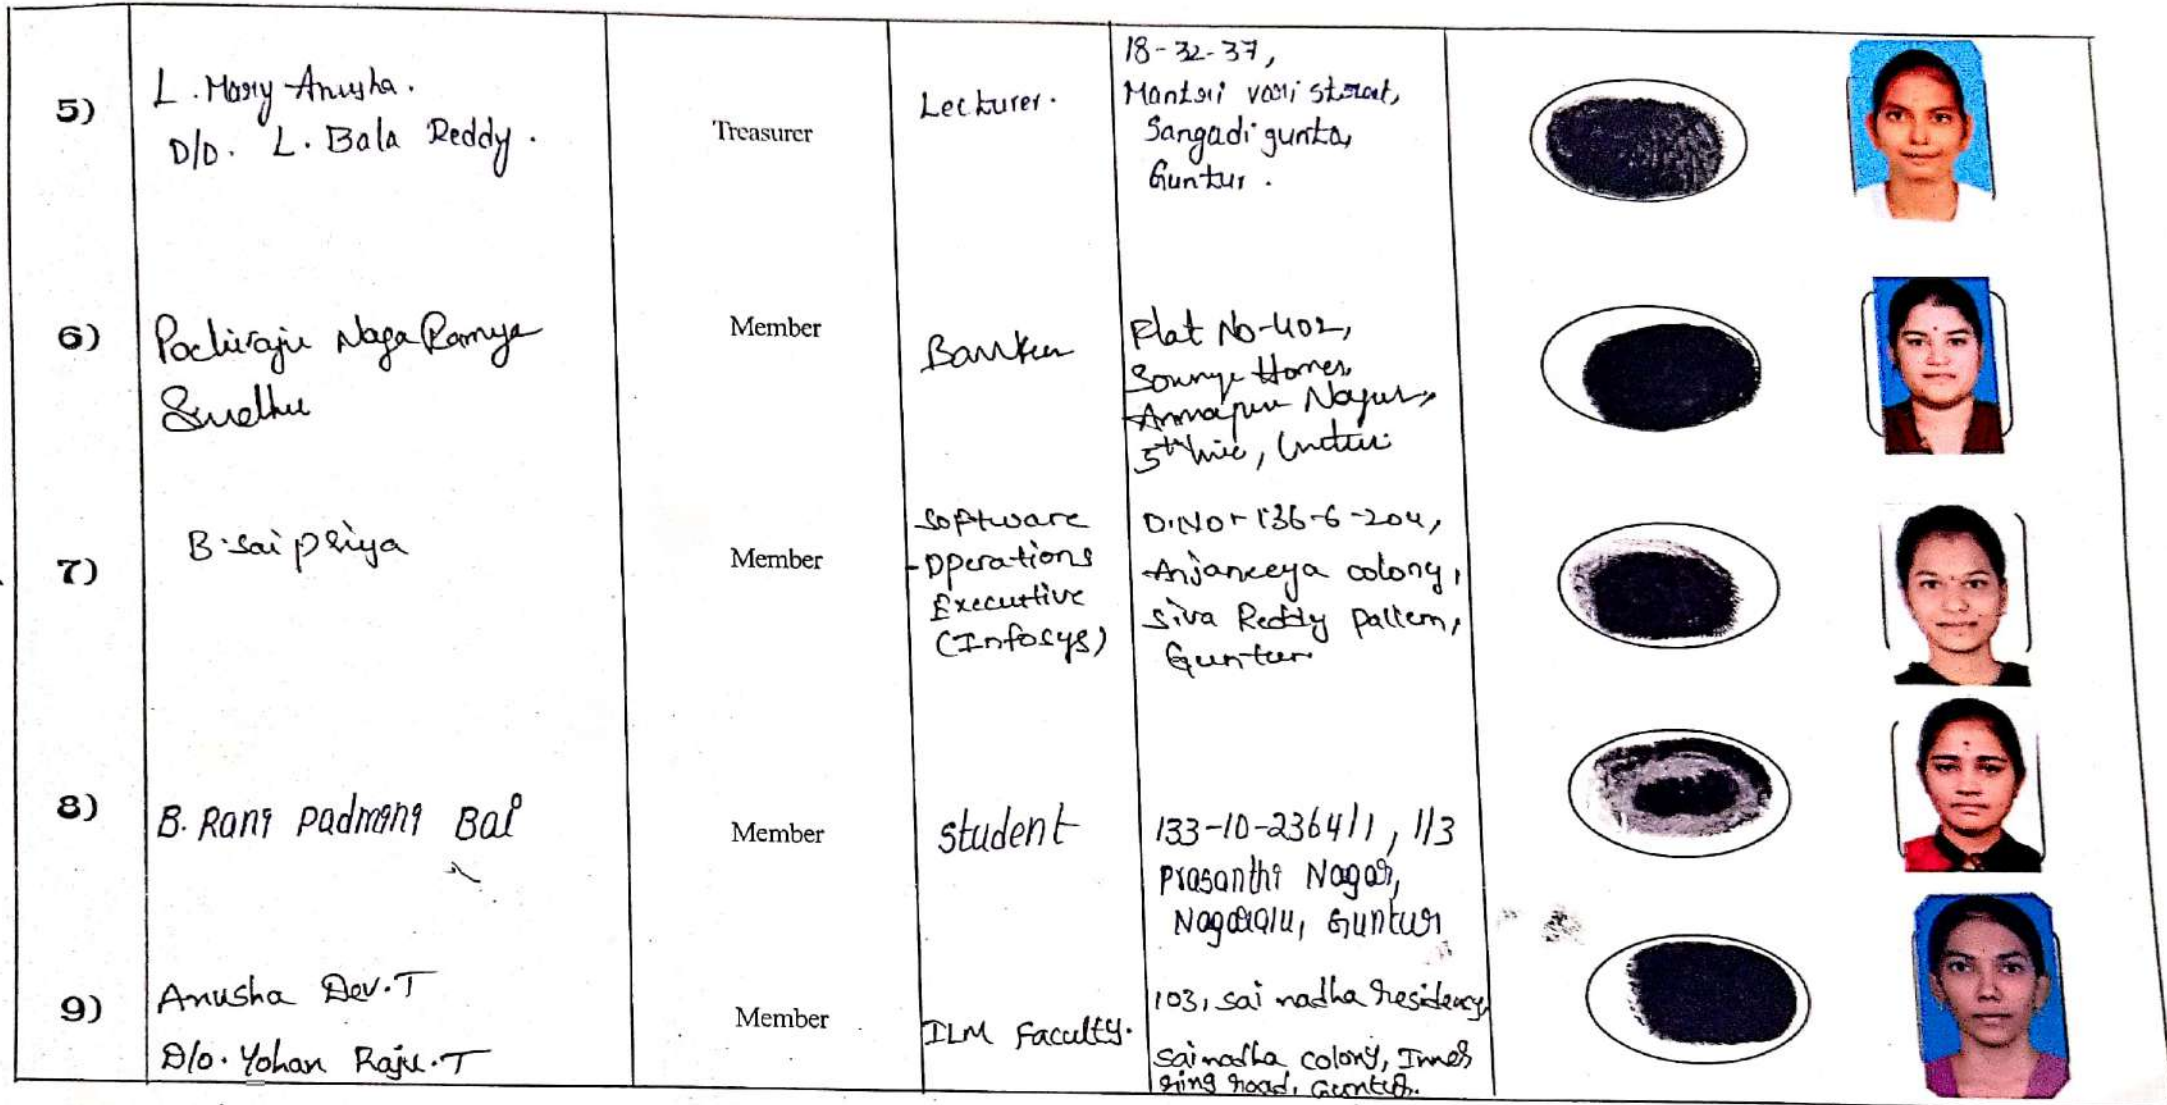 5)
L. Mary Anusha.
D/o. L. Bala Reddy.
Treasurer
Lecturer.
18-32-37,
Mantri vari street,
Sangadi gunta,
Guntur.
6)
Pachiraju Naga Ramya
Sindhu
Member
Banker
Flat No-402,
Homes,
Nagar,
5th line, Guntur
7)
B. Sai priya
Member
Software
Operations
Executive
(Infosys)
D.No- 136-6-204,
Anjaneya colony,
Siva Reddy Pallem,
Guntur.
8)
B. Rani Padmani Bai
Member
Student
133-10-2364/1, 1/3
Prasanthi Nagar,
Nagaralu, Guntur
9)
Anusha Dev.T
D/o. Yohan Raju.T
Member
ILM Faculty.
103, sai nadha residency,
Sainadha colony, Inner
ring road, Guntur.